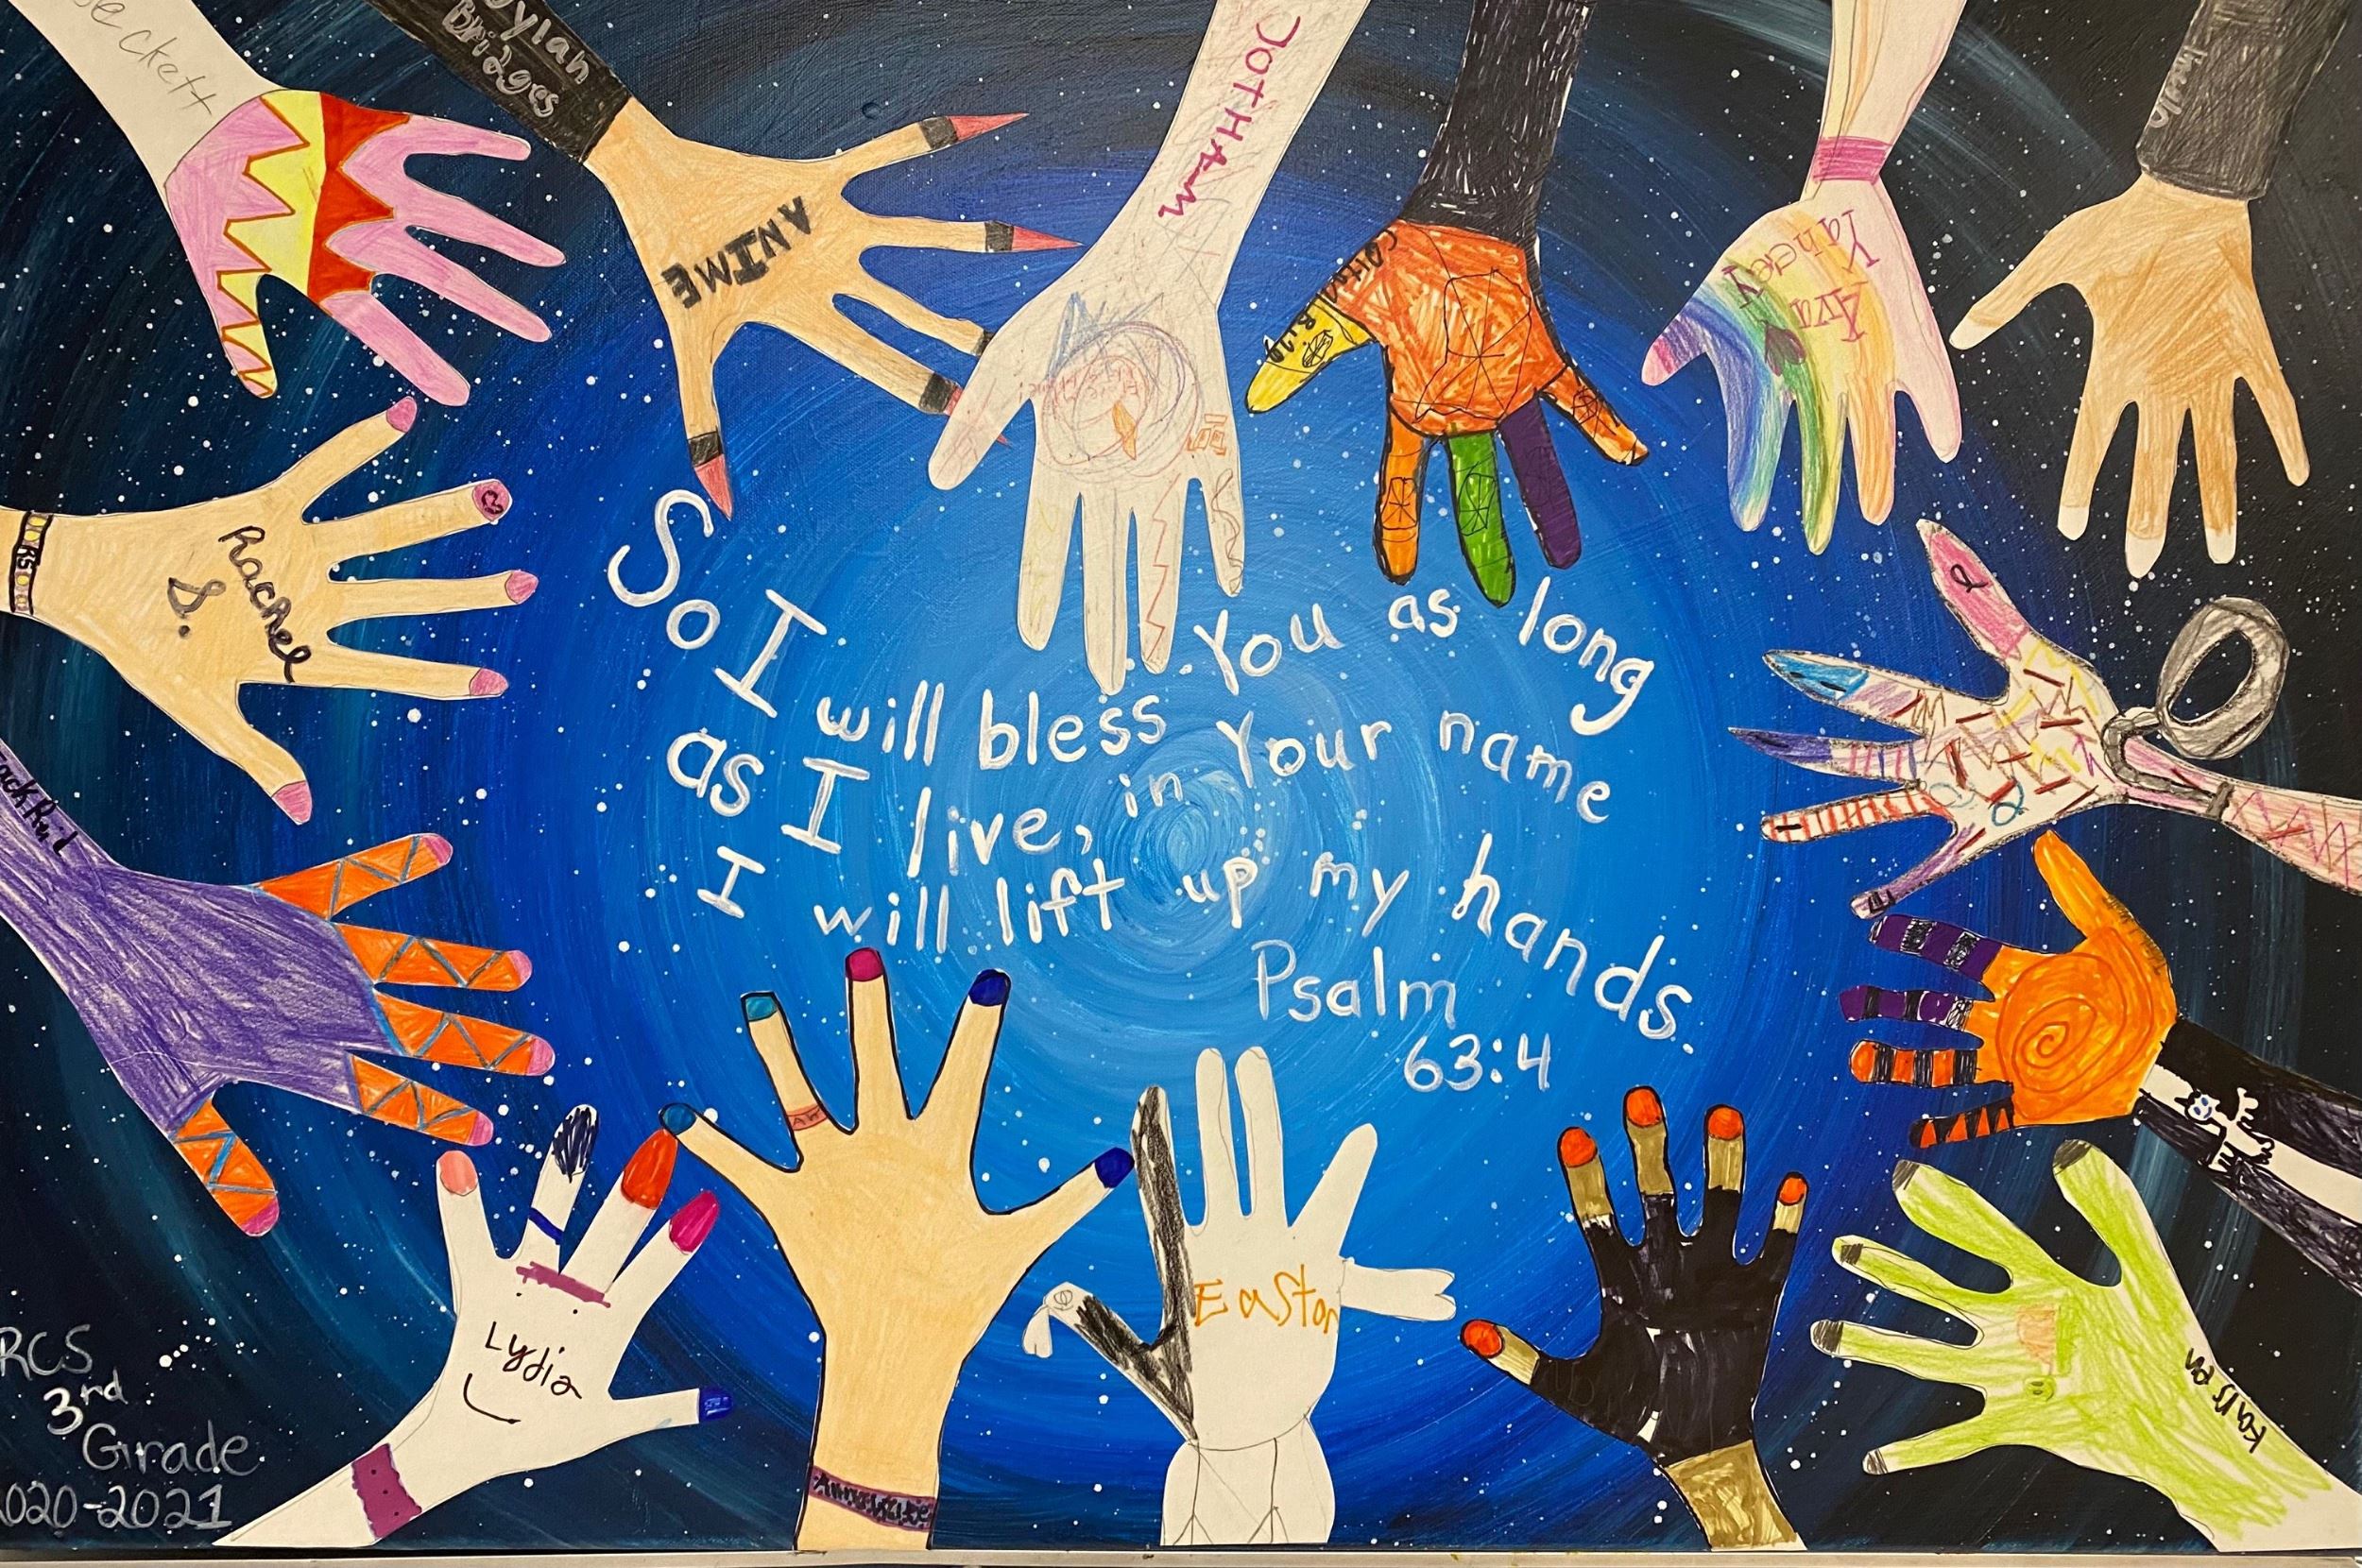 Beckett
Dylan
Bridges
ANIME
JOTHAM
Ava
Yahcey
Rachel
S.
RS
So I will bless You as long
as I live, in Your name
I will lift up my hands.
Psalm
63:4
Lydia
Easton
Karsen
RCS
3rd
Grade
2020-2021